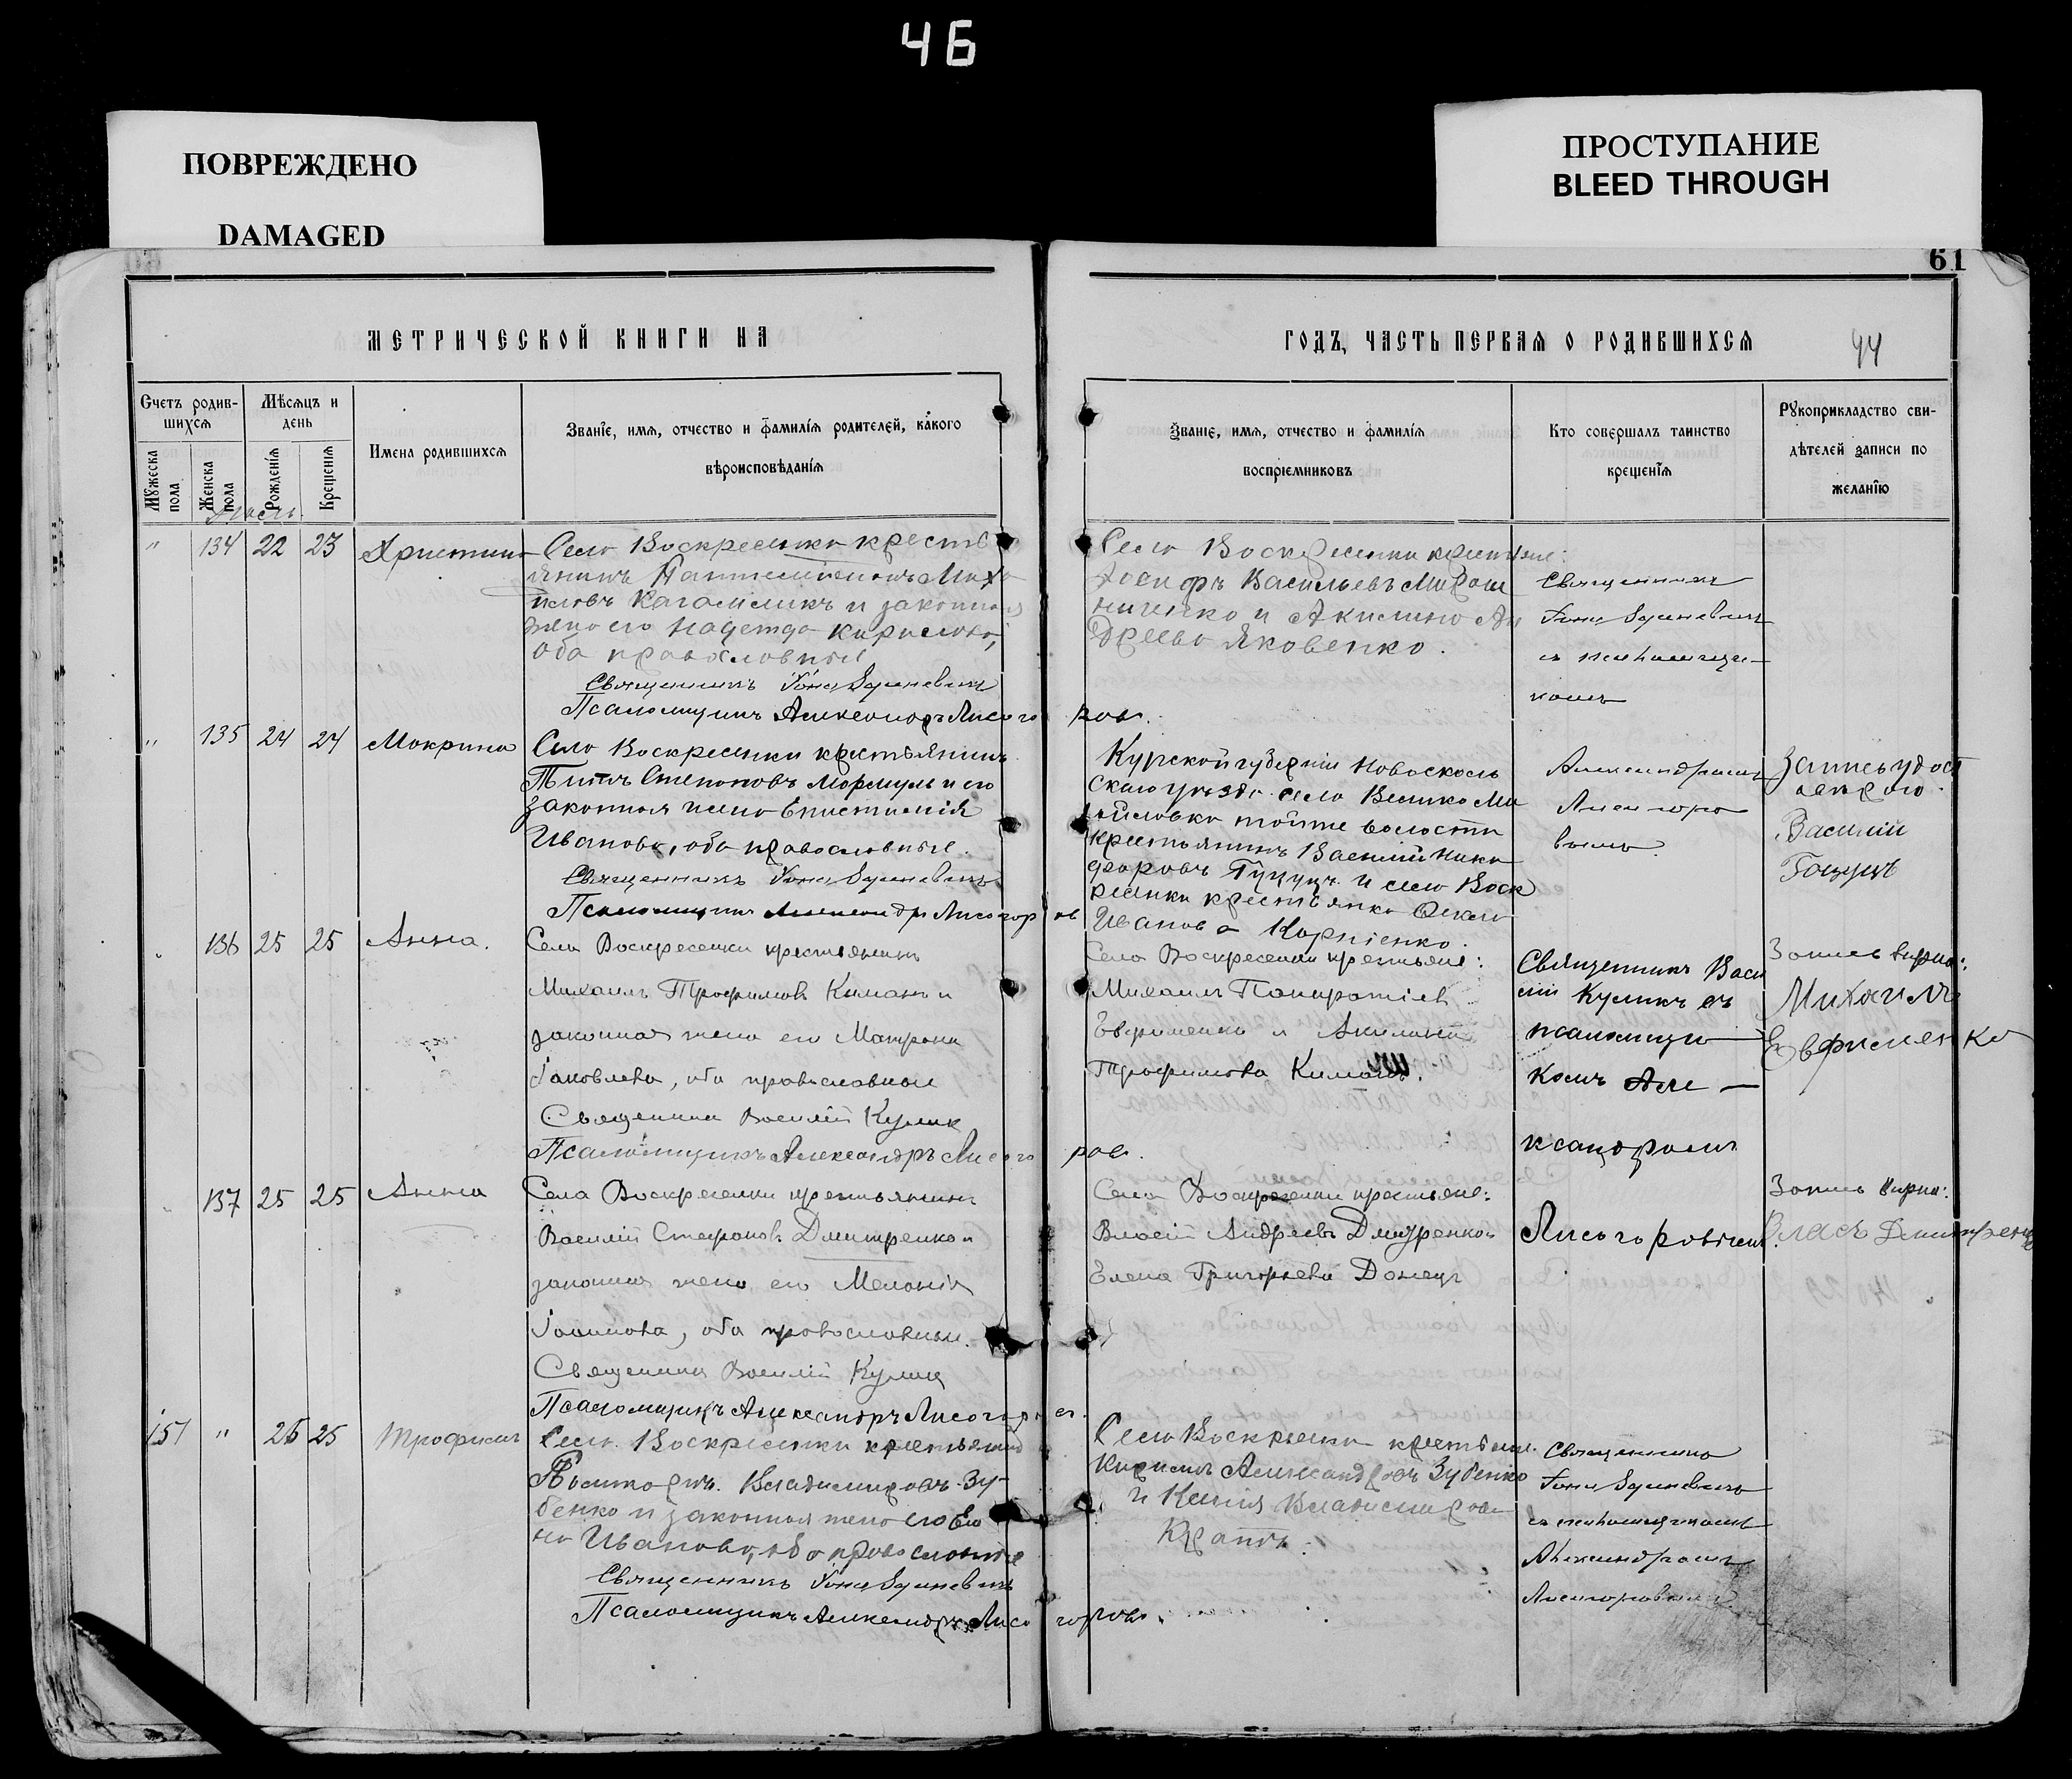 46
ПОВРЕЖДЕНО
DAMAGED
ПРОСТУПАНИЕ
BLEED THROUGH
61
МЕТРИЧЕСКОЙ КНИГИ НА
ГОДЪ, ЧАСТЬ ПЕРВАЯ О РОДИВШИХСЯ
44
Счетъ родив-
шихся
Мужеска пола
Женска пола
Мѣсяцъ и день
Рожденія
Крещенія
Имена родившихся
Званіе, имя, отчество и фамилія родителей, какого
вѣроисповѣданія
Званіе, имя, отчество и фамилія
воспріемниковъ
Кто совершалъ таинство
крещенія
Рукоприкладство сви-
дѣтелей записи по
желанію
" 134 22 23 Христина
Села Воскресенки кресть
янинъ Пантелеимонъ Миха
иловъ Кагамликъ и законная
жена его Надежда Кирилова,
оба православные
Священникъ Іона
Псаломщикъ Александръ Лисого ровъ.
Села Воскресенки крестьяне:
Іосифъ Васильевъ Мирош
ниченко и Акилина Ан
дреева Яковенко.
Священникъ
Іона
съ псаломщи-
комъ
" 135 24 24 Мокрина
Села Воскресенки крестьянинъ
Титъ Степановъ Мормуль и его
законная жена Епистимія
Иванова, оба православные.
Священникъ Іона
Псаломщикъ Александръ Лисогор овъ
Курской губерніи Новоосколь
скаго уѣзда села Велико Ми
хайловка тойже волости
крестьянинъ Василій Ники
форовъ и села Воск
ресенки крестьянка
Иванова Корніенко.
Александромъ
Лисогоро
вымъ.
Запись удост
Василій
" 136 25 25 Анна.
Села Воскресенки крестьянинъ
Михаилъ Трофимовъ Киманъ и
законная жена его Матрона
Іаковлева, оба православные
Священникъ Василій Кулик
Псаломщикъ Александръ Лисого ровъ.
Села Воскресенки крестьяне:
Михаилъ Панкратіев
Евфименко и Акилина
Трофимова Киманъ.
Священникъ Васи
лій Куликъ съ
псаломщи—
комъ Але—
ксандромъ
Запись вѣрна:
Михаилъ
Евфименко
" 137 25 25 Анна
Села Воскресенки крестьянинъ
Василій Стефановъ Дмитренко и
законная жена его Меланія
Іоаннова, оба православные.
Священникъ Василій Кулик
Псаломщикъ Александръ Лисогоровъ.
Села Воскресенки крестьяне:
Власій Андреевъ Дмитренко и
Елена Григорьева Донецъ
Лисогоровымъ.
Запись вѣрна:
Власъ Дмитренко
151 " 25 25 Трофимъ
Села Воскресенки крестьянинъ
Владимировъ Зу-
бенко и законная жена его Еле
на Иванова, оба православные
Священникъ Іона
Псаломщикъ Александръ Лисо горовъ.
Села Воскресенки крестьяне:
Кирилъ Александровъ Зубенко
и Ксенія Владимирова
Священникъ
Іона
съ псаломщикомъ
Александромъ
Лисогоровымъ